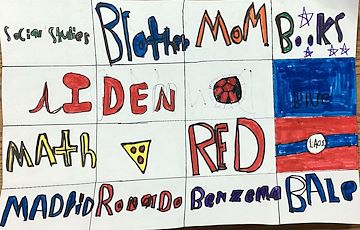 Social Studies Brother MOM Books
AIDEN BlUe
MATh RED LAOS
MADRID RONALDO Benzema BALE